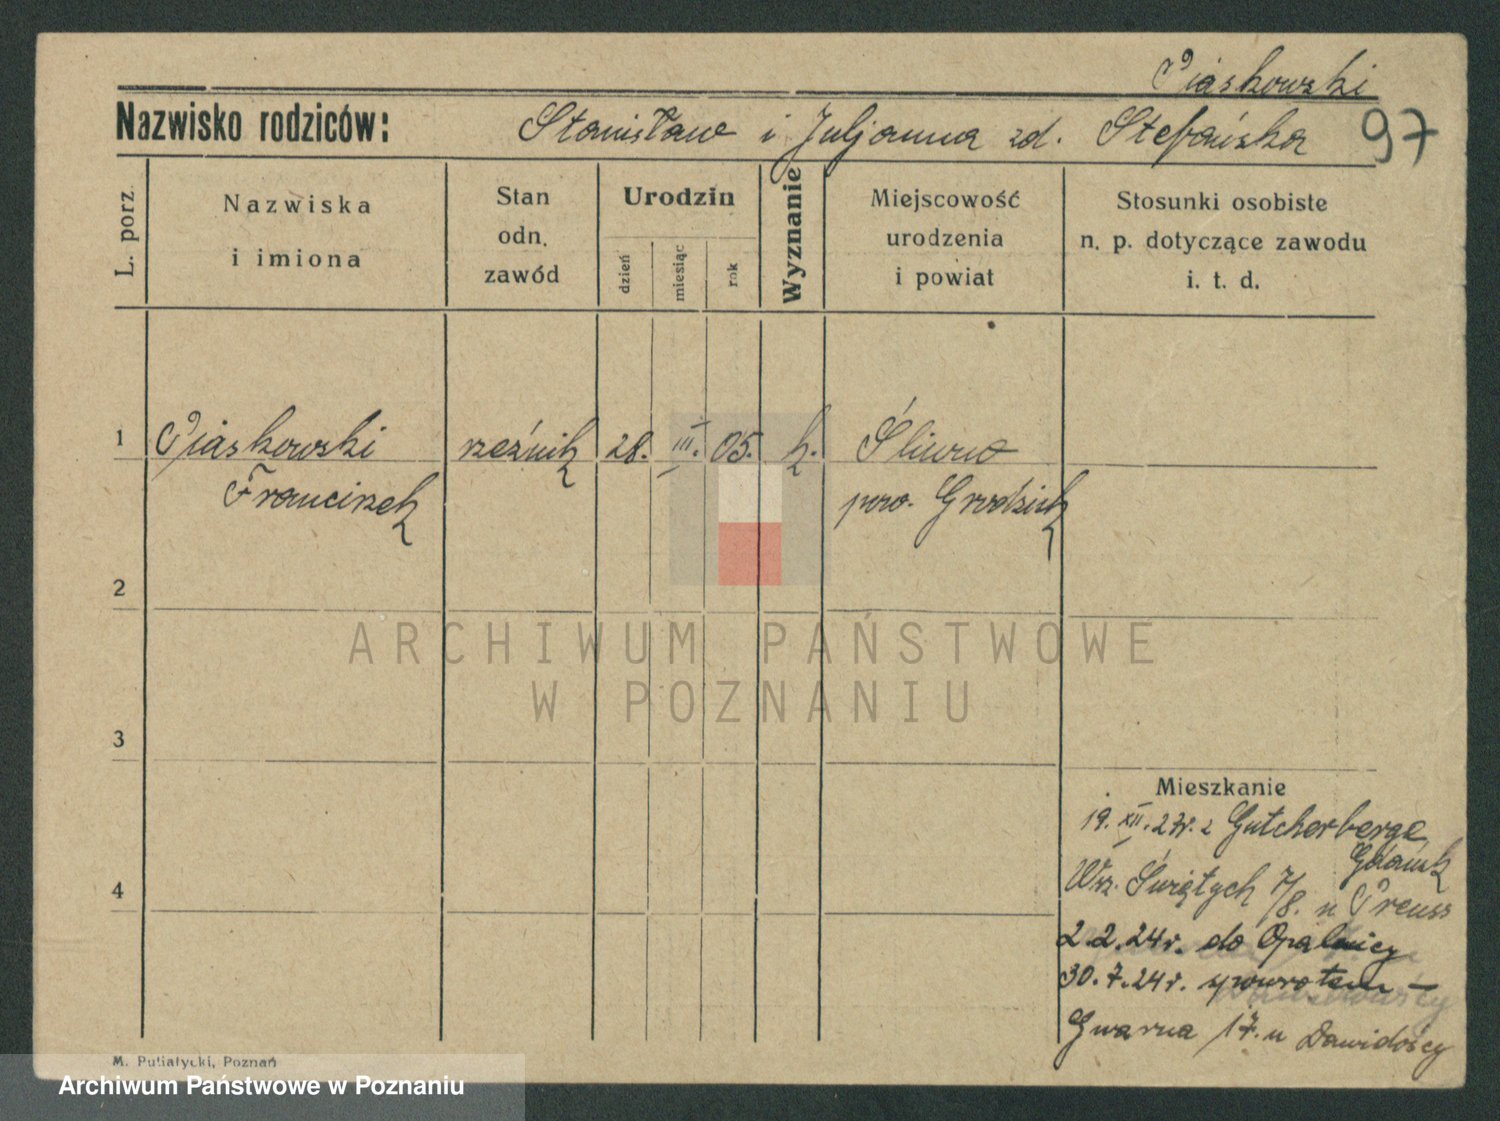 Piaskowski
Nazwisko rodziców: Stanisław i Juljanna zd. Stefańska 97
L. porz.
Nazwiska
i imiona
Stan
odn.
zawód
Urodzin
dzień
miesiąc
rok
Wyznanie
Miejscowość
urodzenia
i powiat
Stosunki osobiste
n. p. dotyczące zawodu
i. t. d.
1 Piaskowski rzeźnik 28. III. 05. k. Śliwno
Franciszek pow. Grodzisk
2
3
4
Mieszkanie
19. XII. 23r. z Gutcherberge
Gdańsk
Wsz. Świętych 7/8. u Preuss
2.2.24r. do Opalenicy
30.7.24r. spowrotem –
Gwarna 17. u Dawidoścy
ARCHIWUM PAŃSTWOWE
W POZNANIU
M. Putiatycki, Poznań
Archiwum Państwowe w Poznaniu